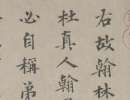 右故翰林
杜真人翰
必自稱弟